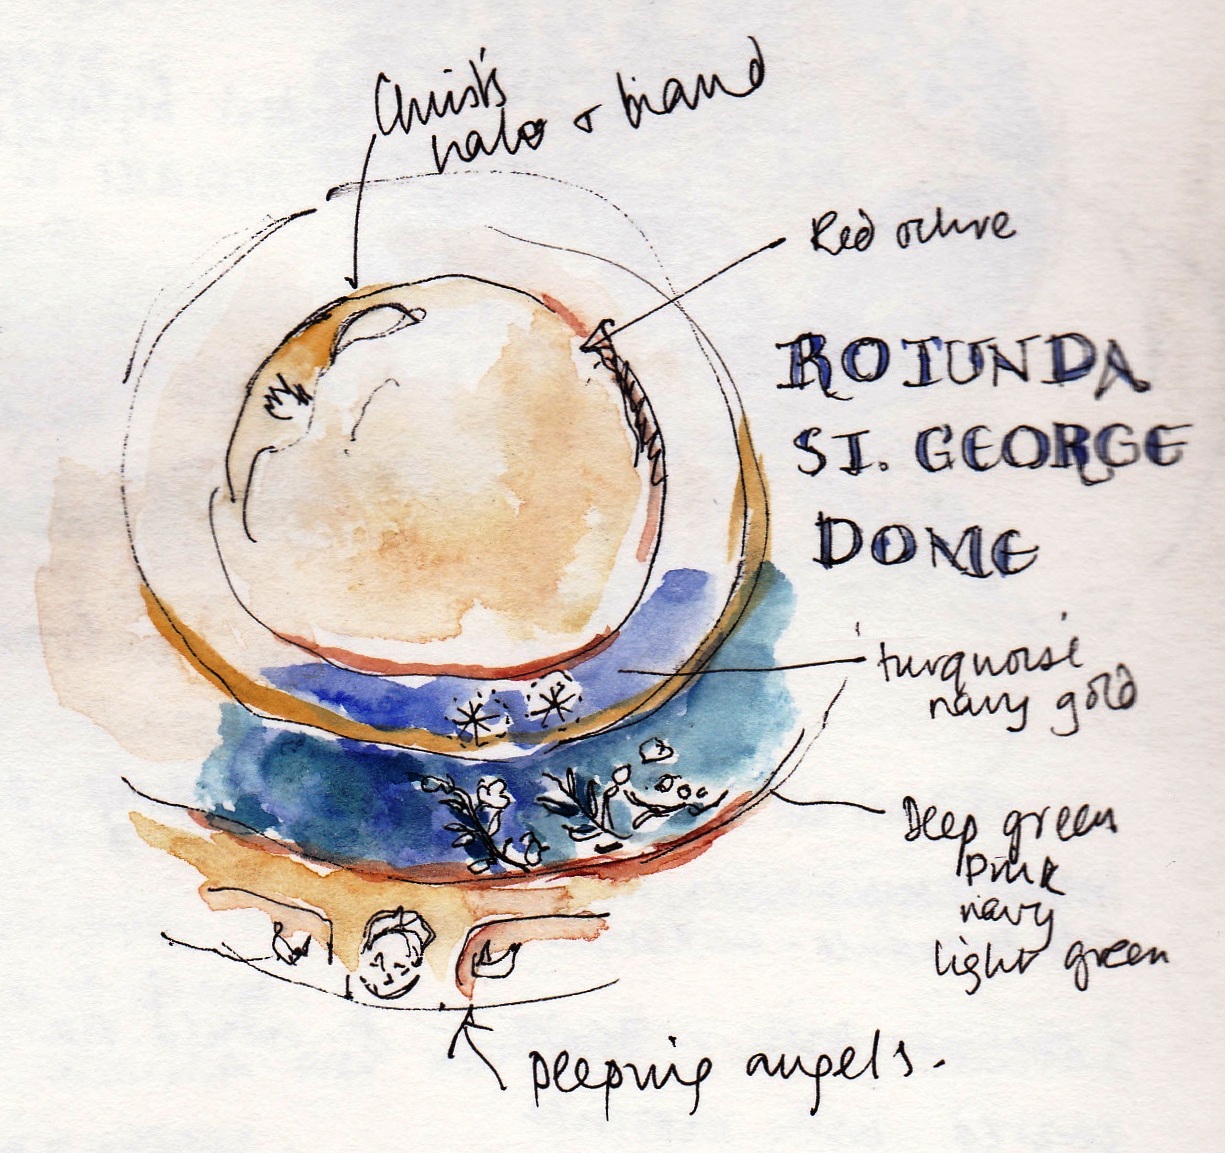 Christ's
halo & hand
Red ochre
ROTUNDA
ST. GEORGE
DOME
'turquoise'
navy gold
Deep green
pink
navy
light green
peeping angels.